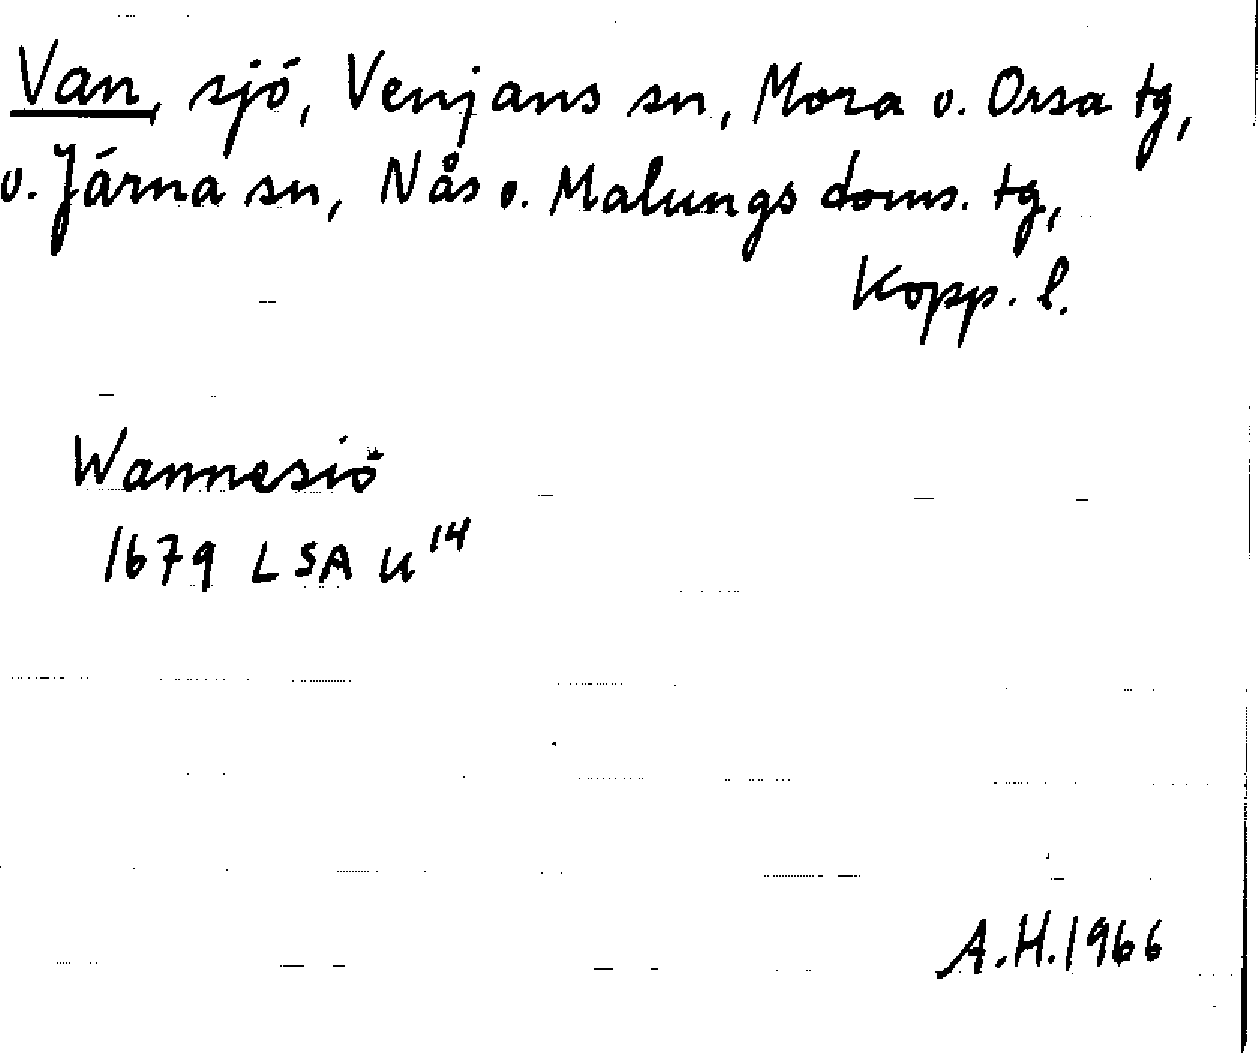 Van, sjö, Venjans sn, Mora o. Orsa tg,
o. Järna sn, Nås o. Malungs doms. tg,
Kopp. l.
Wannesiö
1679 LSA U 14
A.H. 1966